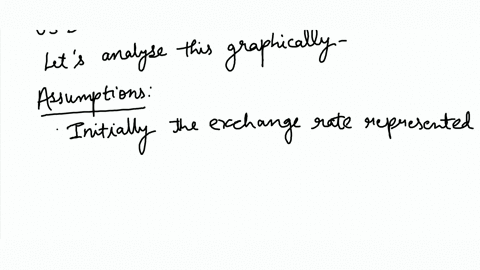 Let's analyse this graphically-
Assumptions:
· Initially the exchange rate represented